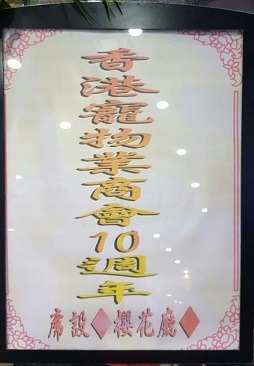 香港寵物業商會10週年
席設♦櫻花廳♦